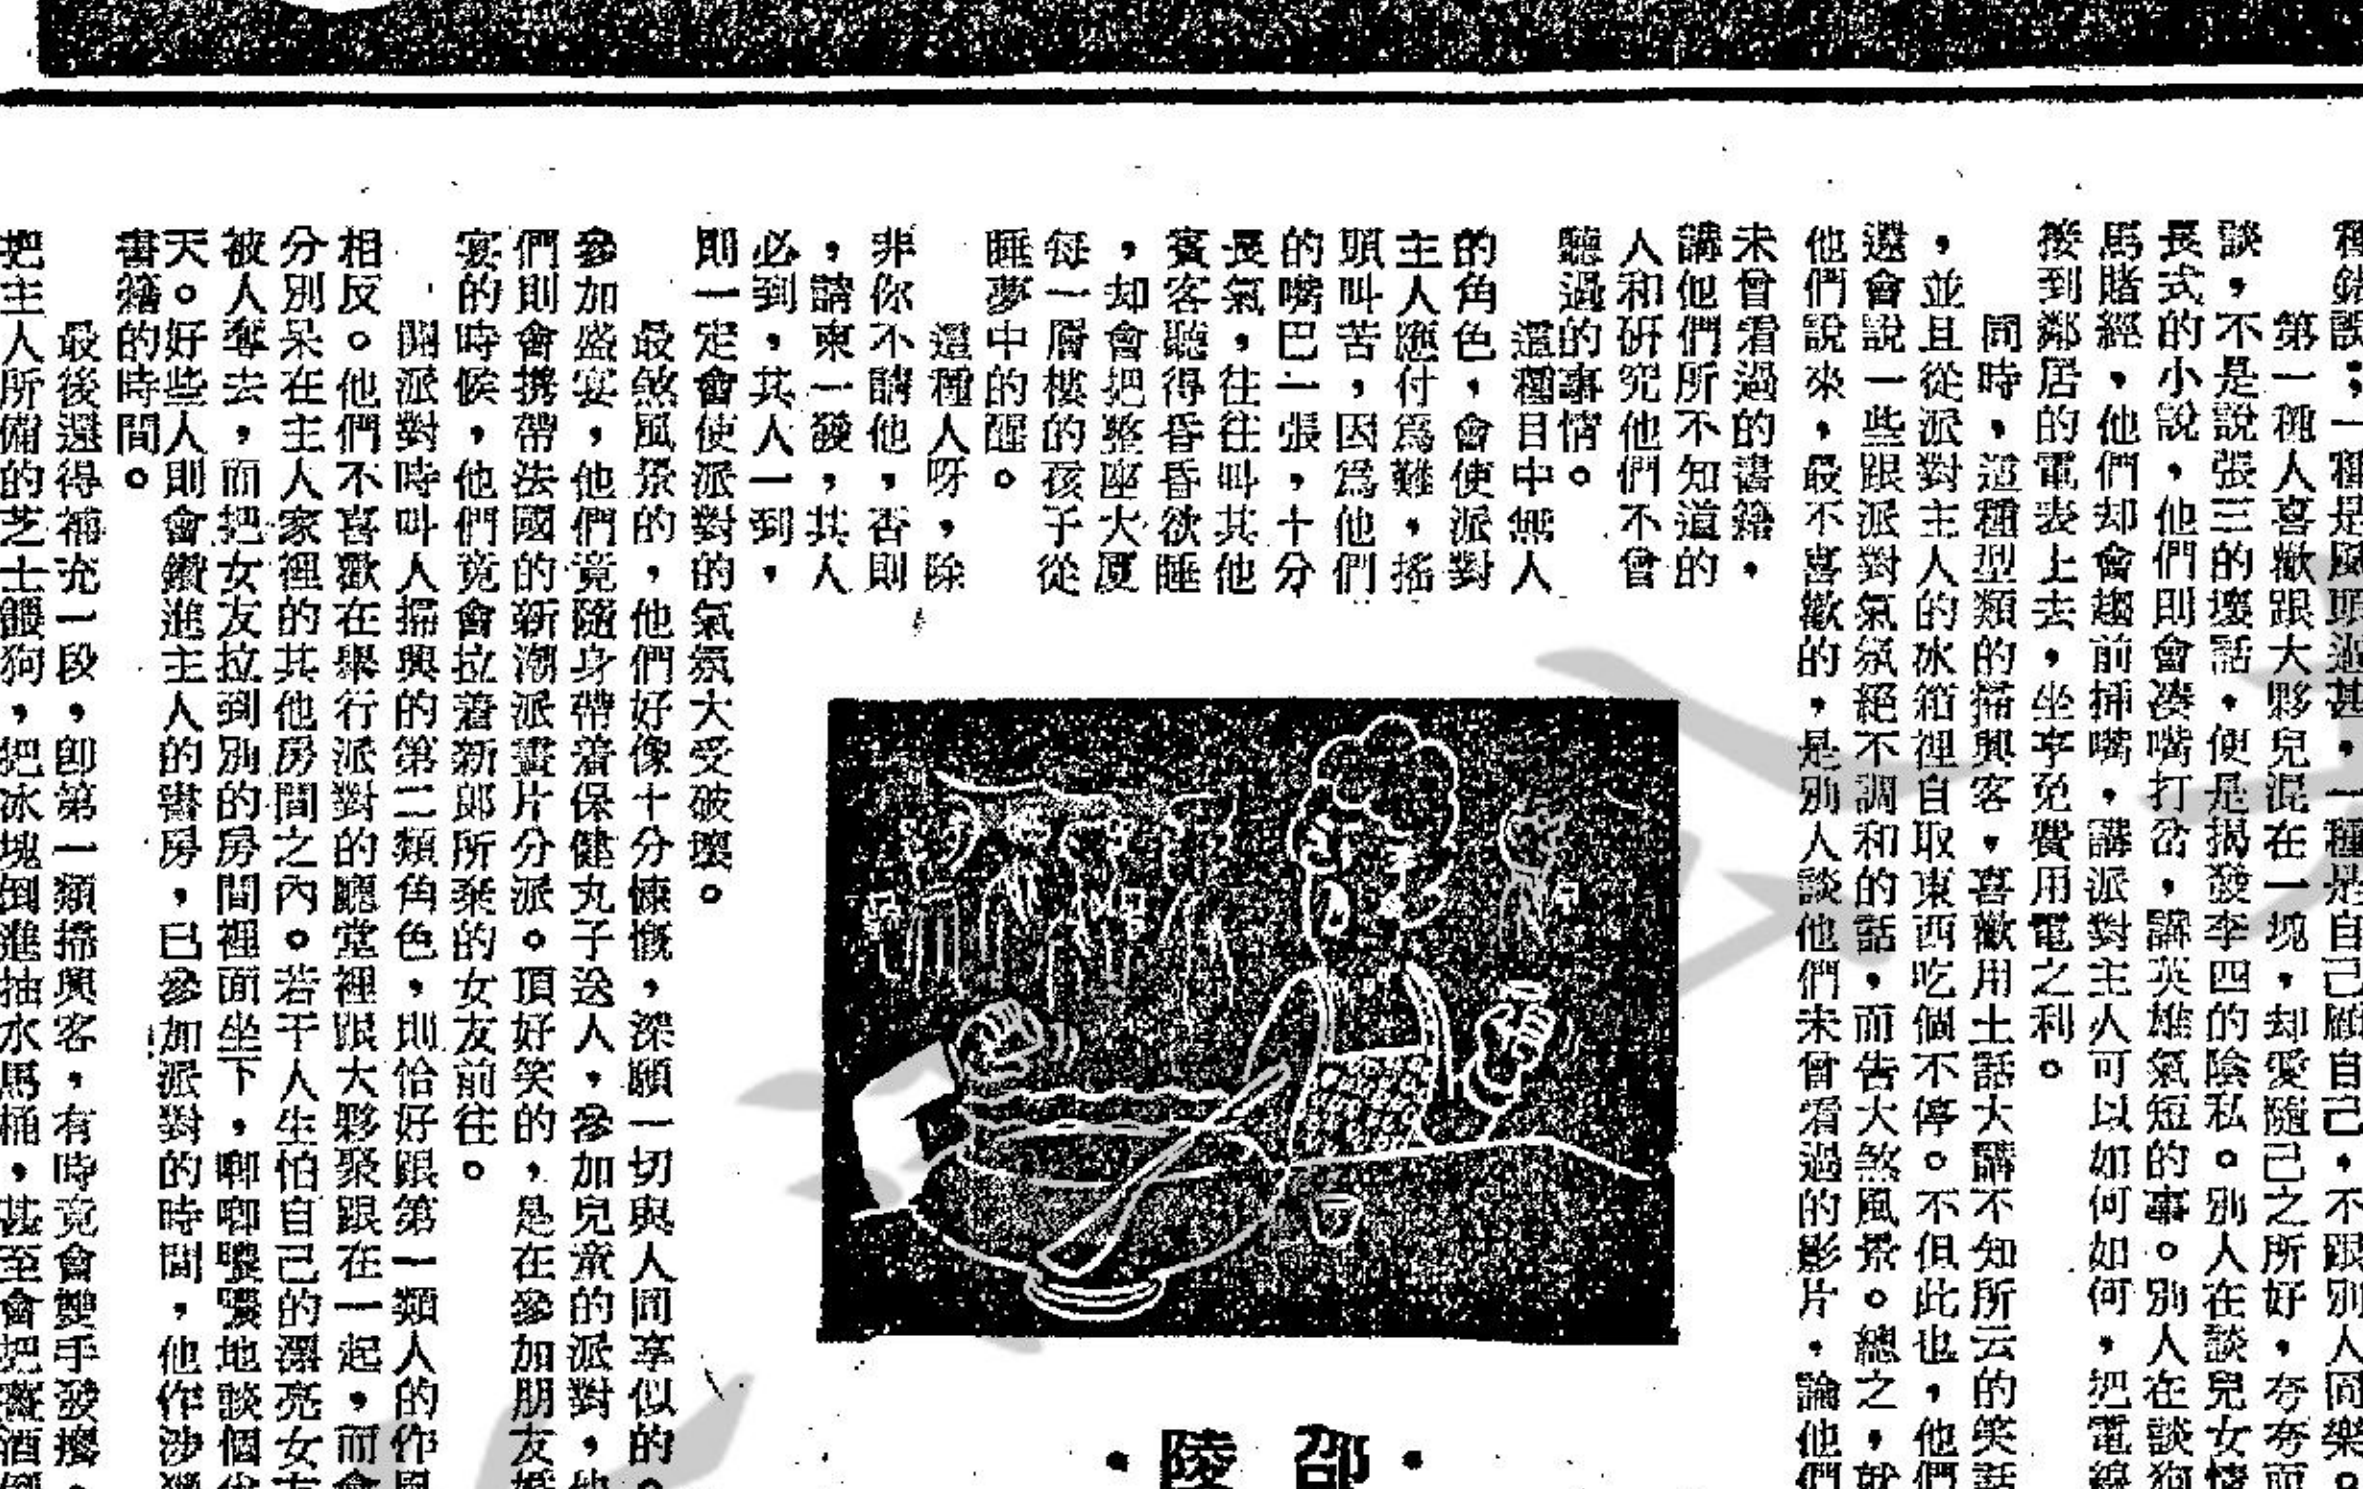 種是風頭過甚，一種是自己顧自己，不跟別人同樂。
第一種人喜歡跟大夥兒混在一塊，却愛隨己之所好，夸夸而
談，不是說張三的壞話，便是揭發李四的陰私。別人在談兒女情
長式的小說，他們則會凑嘴打岔，講英雄氣短的事。別人在談狗
馬賭經，他們却會趨前挿嘴，講派對主人可以如何如何，把電線
接到鄰居的電表上去，坐享免費用電之利。
同時，這種型類的掃興客，喜歡用土話大講不知所云的笑話
，並且從派對主人的冰箱裡自取東西吃個不停。不但此也，他們
還會說一些跟派對氣氛絕不調和的話，而告大煞風景。總之，就
他們說來，最不喜歡的，是別人談他們未曾看過的影片，論他們
未曾看過的書籍，
講他們所不知道的
人和研究他們不曾
聽過的事情。
這種目中無人
的角色，會使派對
主人應付爲難，搖
頭叫苦，因爲他們
的嘴巴一張，十分
長氣，往往叫其他
賓客聽得昏昏欲睡
，却會把整座大厦
每一層樓的孩子從
睡夢中的醒。
這種人呀，除
非你不請他，否則
，請柬一發，其人
必到，其人一到，
則一定會使派對的氣氛大受破壞。
最煞風景的，他們好像十分慷慨，深願一切與人同享似的。
參加盛宴，他們竟隨身帶着保健丸子送人，參加兒童的派對，他
們則會携帶法國的新潮派畫片分派。頂好笑的，是在參加朋友婚
宴的時候，他們竟會拉着新郎所棄的女友前往。
開派對時叫人掃興的第二類角色，則恰好跟第一類人的作風
相反。他們不喜歡在舉行派對的廳堂裡跟大夥聚跟在一起，而會
分別呆在主人家裡的其他房間之內。若干人生怕自己的漂亮女友
被人奪去，而把女友拉到別的房間裡面坐下，唧唧噥噥地談個
天。好些人則會鑽進主人的書房，已參加派對的時間，他作涉獵
書籍的時間。
最後還得補充一段，卽第一類掃興客，有時竟會雙手發癢，
把主人所備的芝士餵狗，把冰塊倒進抽水馬桶，甚至會把酒倒
・邵陵・